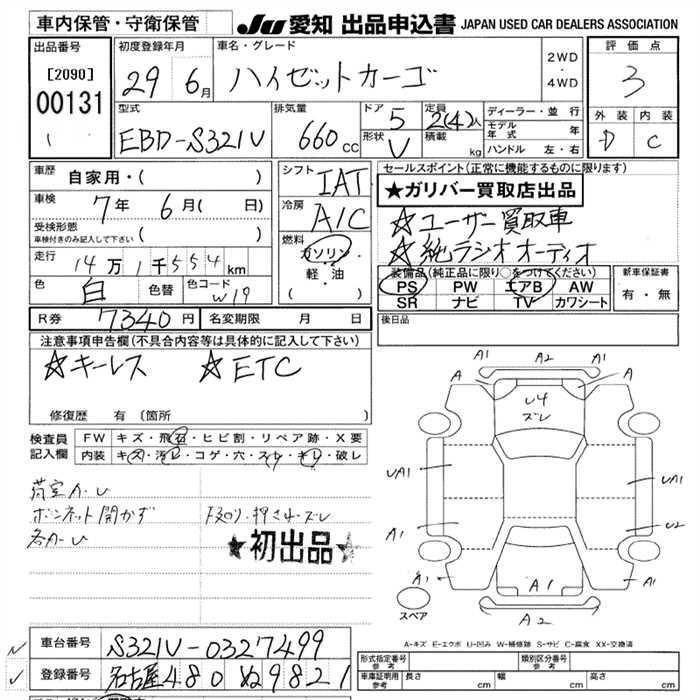 車内保管・守衛保管 JU 愛知 出品申込書 JAPAN USED CAR DEALERS ASSOCIATION
出品番号 初度登録年月 車名・グレード 評価点
[2090] 29 6月 ハイゼットカーゴ 2WD・4WD 3
00131 型式 排気量 ドア 5 定員 2(4)人 ディーラー・並行 外装 内装
1 EBD-S321V 660cc 形状 V 積載 kg モデル年式 年 D C
ハンドル 左・右
車歴 自家用・( ) シフト IAT セールスポイント(正常に機能するものに限ります)
★ガリバー買取店出品
車検 7年 6月( 日) 冷房 A/C ☆ユーザー買取車
受検形態 車検付きのみ記入して下さい ( ) 燃料 ガソリン ☆純ラジオオーディオ
走行 14万1千554km ・軽油 装備品(純正品に限り○をつけてください) 新車保証書
色 白 色替 色コード W19 ・( ) PS PW エアB AW 有・無
SR ナビ TV カワシート
R券 7340円 名変期限 月 日 後日品
注意事項申告欄(不具合内容等は具体的に記入して下さい)
☆キーレス ☆ETC
修復歴 有 (箇所 )
検査員記入欄 FW キズ・飛石・ヒビ割・リペア跡・X要
内装 キズ・汚レ・コゲ・穴・スレ・キレ・破レ
荷室A・U
ボンネット開かず
各A・U
★初出品★
A1 A2 A1
A A
U4
ズレ
UA1 UA1
A1 U2
A1 A1 A1
スペア A2
A-キズ E-エクボ U-凹み W-補修跡 S-サビ C-腐食 XX-交換済
車台番号 S321V-0327499
登録番号 名古屋480ぬ9821
形式指定番号 参考 類別区分番号 参考
車庫証明用参考 長さ cm 幅 cm 高さ cm